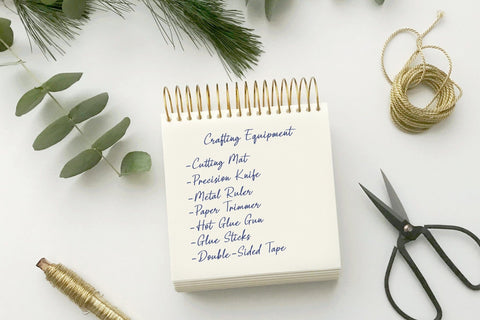 Crafting Equipment
-Cutting Mat
-Precision Knife
-Metal Ruler
-Paper Trimmer
-Hot Glue Gun
-Glue Sticks
-Double-Sided Tape